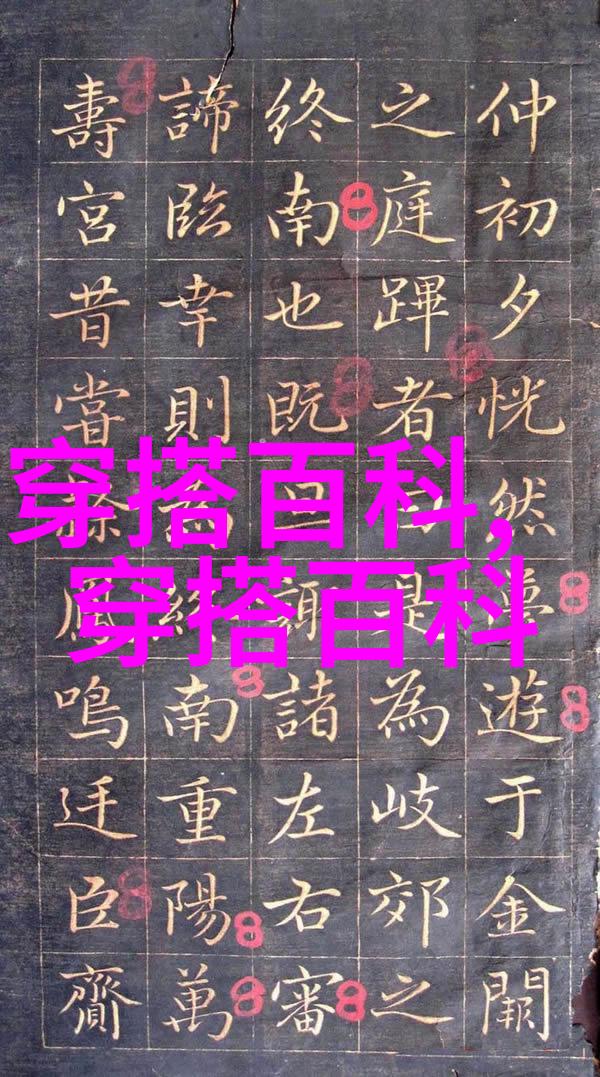 仲初夕恍然遊于金闕
之庭蹕者曰是為岐郊之
終南也既旦諸左右審
諦臨幸則為終南重陽萬
壽宮昔嘗鳴廷臣齎
穿搭百科,
穿搭百科